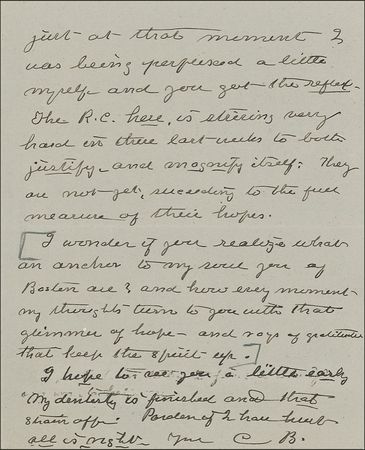 just at that moment I
was being perplexed a little
myself and you got the reflex.
The R.C. here, is striving very
hard in these last weeks to both
justify and magnify itself: They
are not yet, succeeding to the full
measure of their hopes.
[I wonder if you realize what
an anchor to my soul you of
Boston are? and how every moment
my thoughts turn to you with that
glimmer of hope - and rays of gratitude
that keep the spirit up.]
I hope to see you a little early
My dentistry is finished and that
strain off. Pardon if I have hurt
all is right. Your C B.